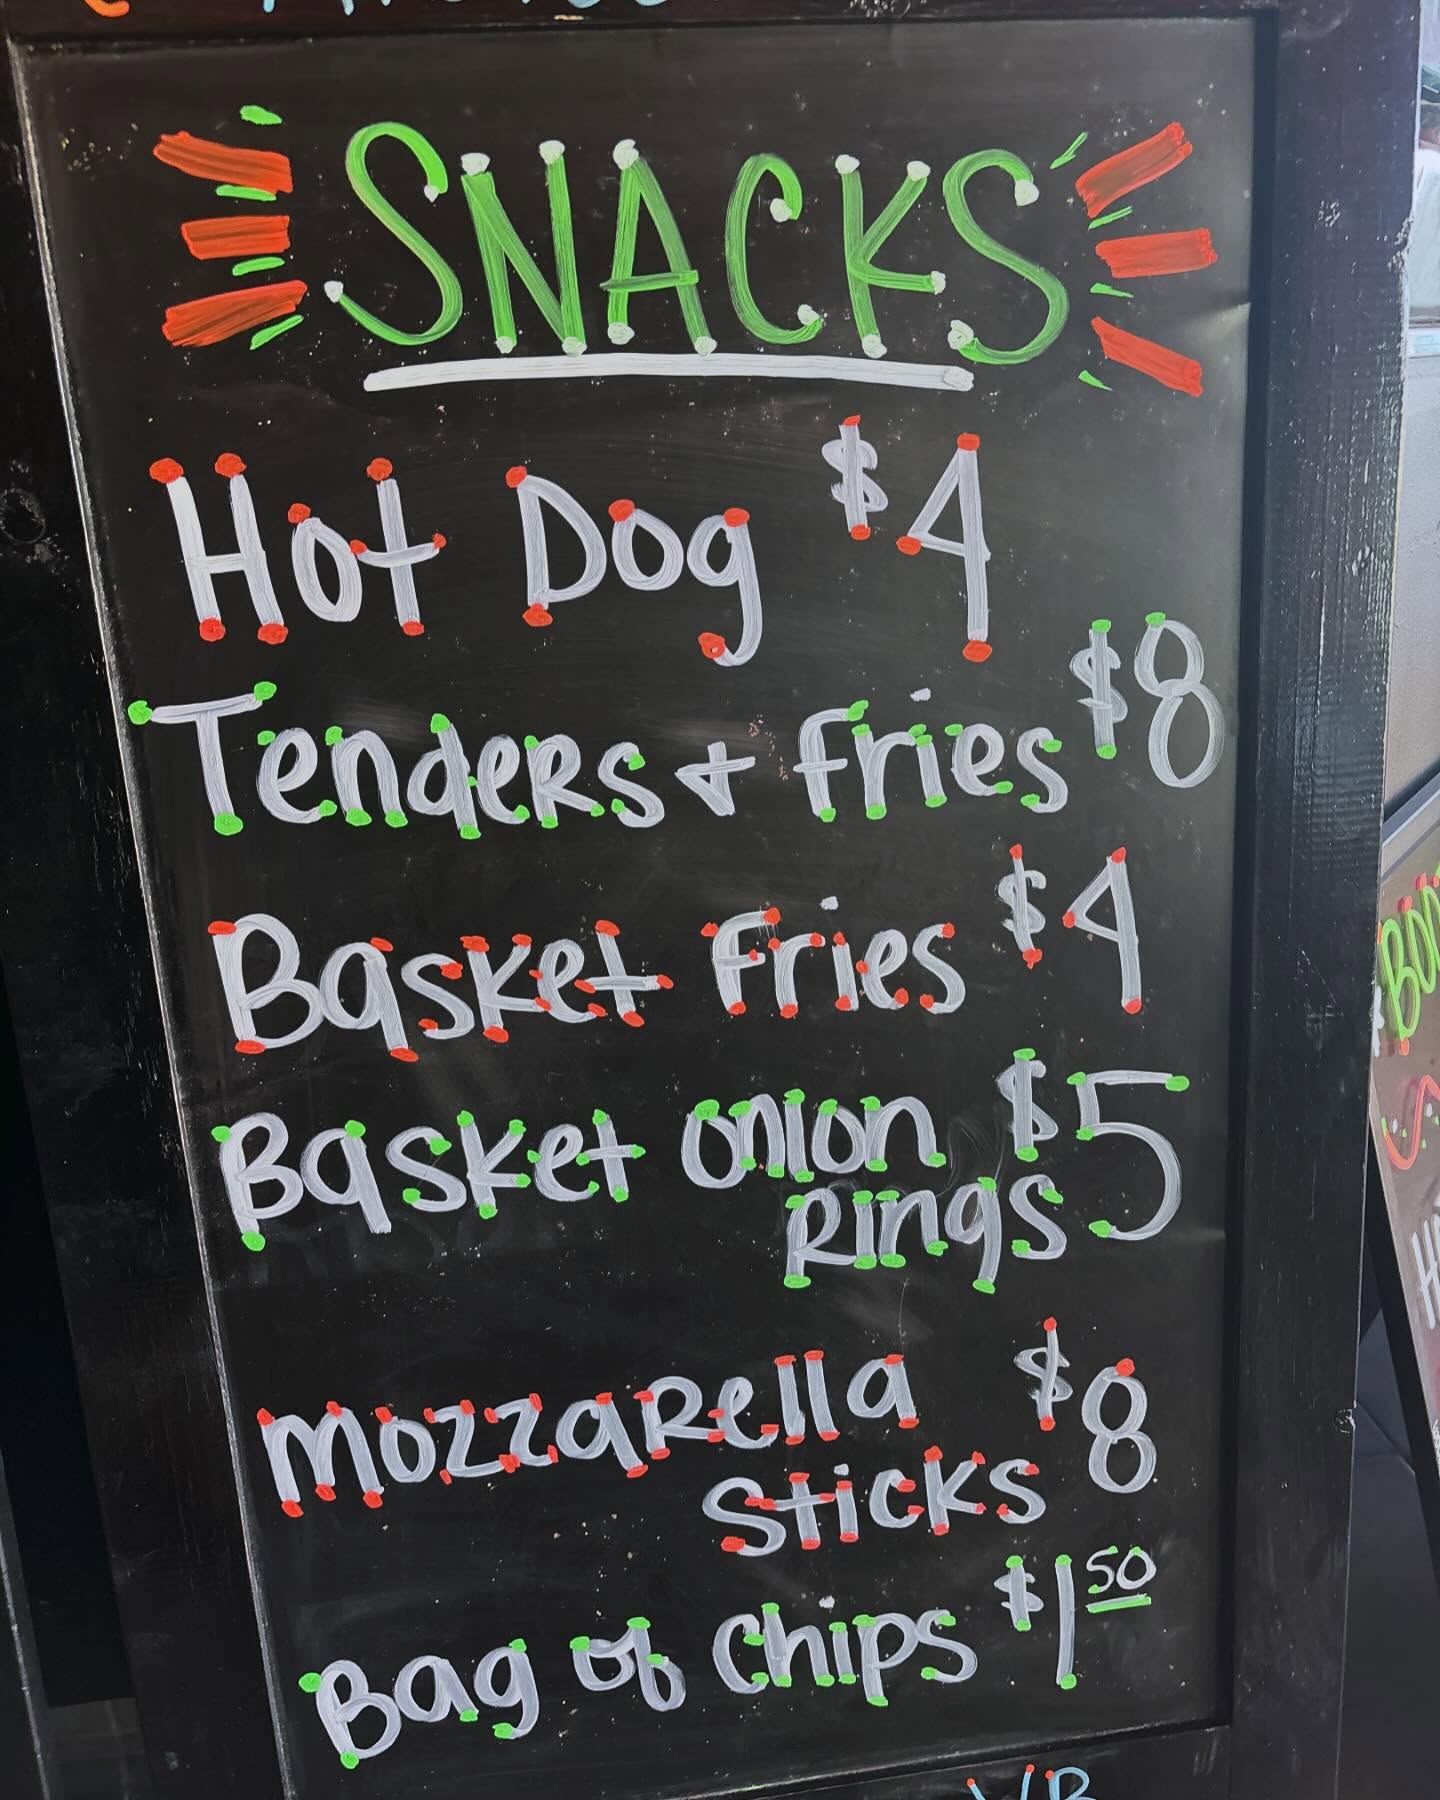 SNACKS
Hot Dog $4
Tenders + Fries $8
Basket Fries $4
Basket onion $5
Rings
Mozzarella $8
Sticks
Bag of Chips $1 50